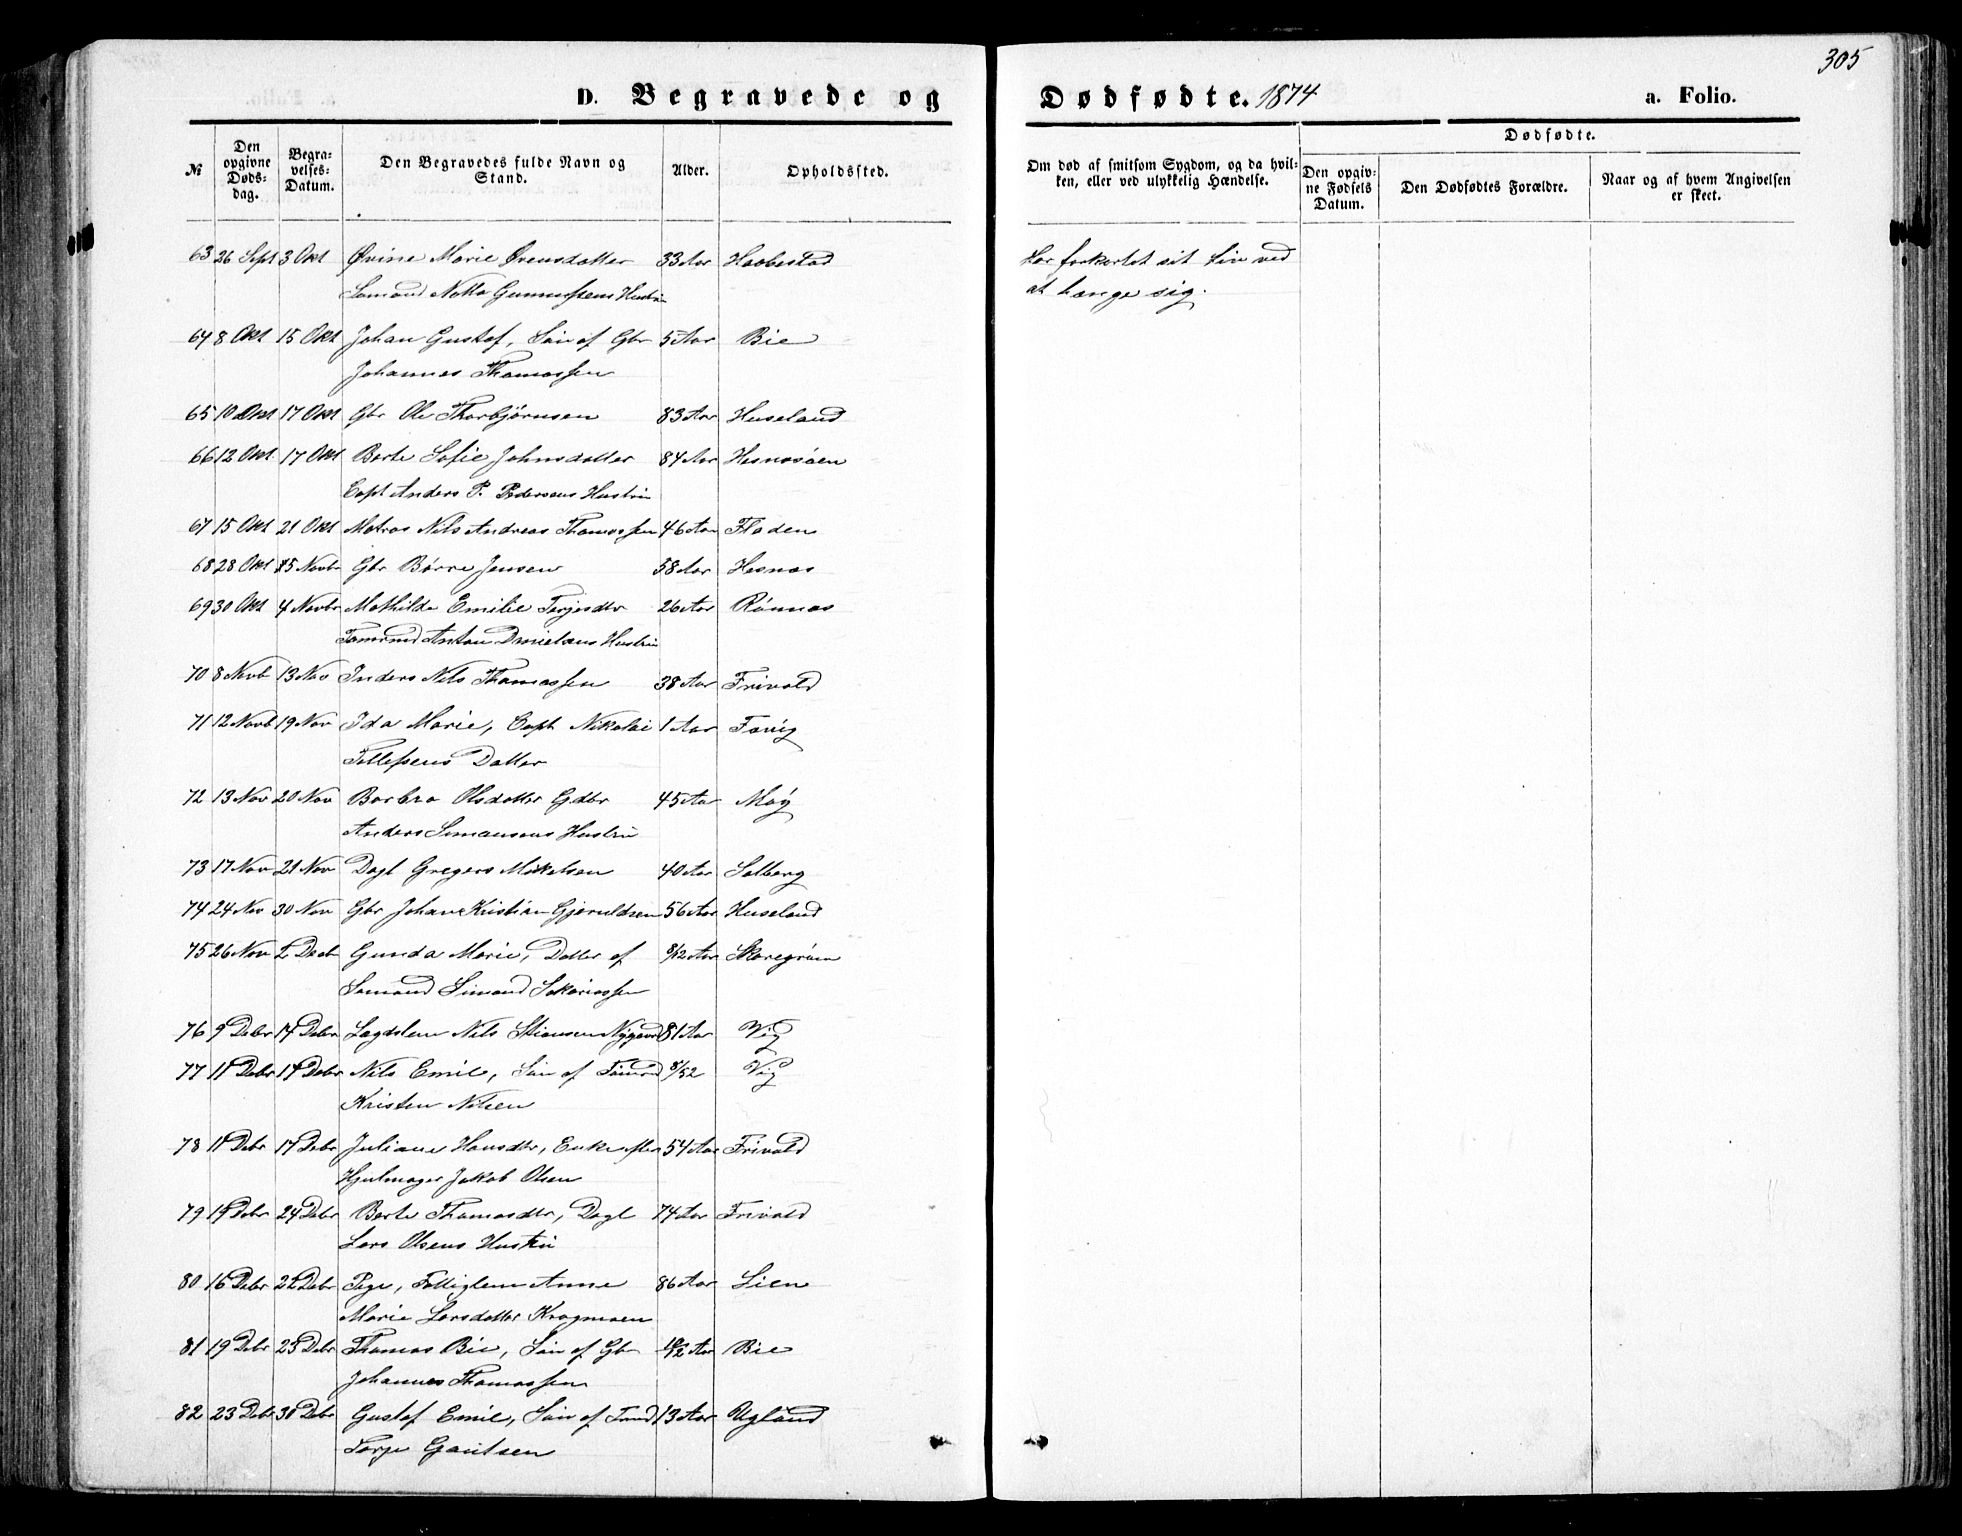 305
D. Begravede og Dødfødte. 1874 a. Folio.
№ | Den opgivne Døds-dag. | Begra-velses-Datum. | Den Begravedes fulde Navn og Stand. | Alder. | Opholdssted. | Om død af smitsom Sygdom, og da hvil-ken, eller ved ulykkelig Hændelse. | Dødfødte. | Den opgiv-ne Fødsels Datum. | Den Dødfødtes Forældre. | Naar og af hvem Angivelsen er skeet.
63 26 Sept 3 Okt Øvine Marie Øvensdatter 33 Aar Haabestad Har forkortet sit Liv ved
Sømand Gunnufsens Hustru at hænge sig.
64 8 Okt 15 Okt Johan Gustaf, Søn af Gbr 5 Aar Bie
Johannes Thomassen
65 10 Okt 17 Okt Gbr Ole Thorbjørnsen 83 Aar Huseland
66 12 Okt. 17 Okt Berte Sofie Johnsdatter 84 Aar Hesnesøen
Capt Anders P. Pedersens Hustru
67 15 Okt 21 Okt Matros Nils Andreas Thomassen 46 Aar Fladen
68 28 Okt 5 Novbr Gbr Børre Jensen 58 Aar Hesnes
69 30 Okt 4 Novbr Mathilde Emilie Terjesdtr 26 Aar Rønnes
Tømmnd Anton Danielsens Hustru
70 8 Novb 13 Nov Inders Nils Thomassen 38 Aar Frivold
71 12 Novb 19 Nov Ida Marie, Capt Nikolai 1 Aar Fevig
Tellefsens Datter
72 13 Nov 20 Nov Barbro Olsdatter Gdbr 45 Aar Moy
Anders Simonsens Hustru
73 17 Nov 21 Nov Dagl Gregers Mikelsen 40 Aar Solberg
74 24 Nov 30 Nov Gbr Johan Kristian Gjeruldsen 56 Aar Huseland
75 26 Nov 2 Decb Gunda Marie, Datter af 8/12 Aar Skaregrøm
Sømand Simond Sakariassen
76 9 Debr 14 Debr Lægdslem Nils Stiansen 81 Aar Vig
77 11 Debr 17 Debr Nils Emil, Søn af Tømmd 8/52 Vig
Kristen Nilsen
78 11 Debr 17 Debr Juliane Hansdtr, Enke efter 54 Aar Frivold
Hjulmager Jakob Olsen
79 19 Debr 24 Debr Berte Thomasdtr, Dagl 74 Aar Frivold
Lars Olsens Hustru
80 16 Debr 22 Debr Pige, Fattiglem Anne 86 Aar Lien
Marie Larsdatter Kragmoen
81 19 Debr 23 Debr Thomas Bie, Søn af Gbr 10/12 Aar Bie
Johannes Thomassen
82 23 Debr 30 Debr Gustaf Emil, Søn af Tmd 13 Aar Ugland
Terje Gautsen